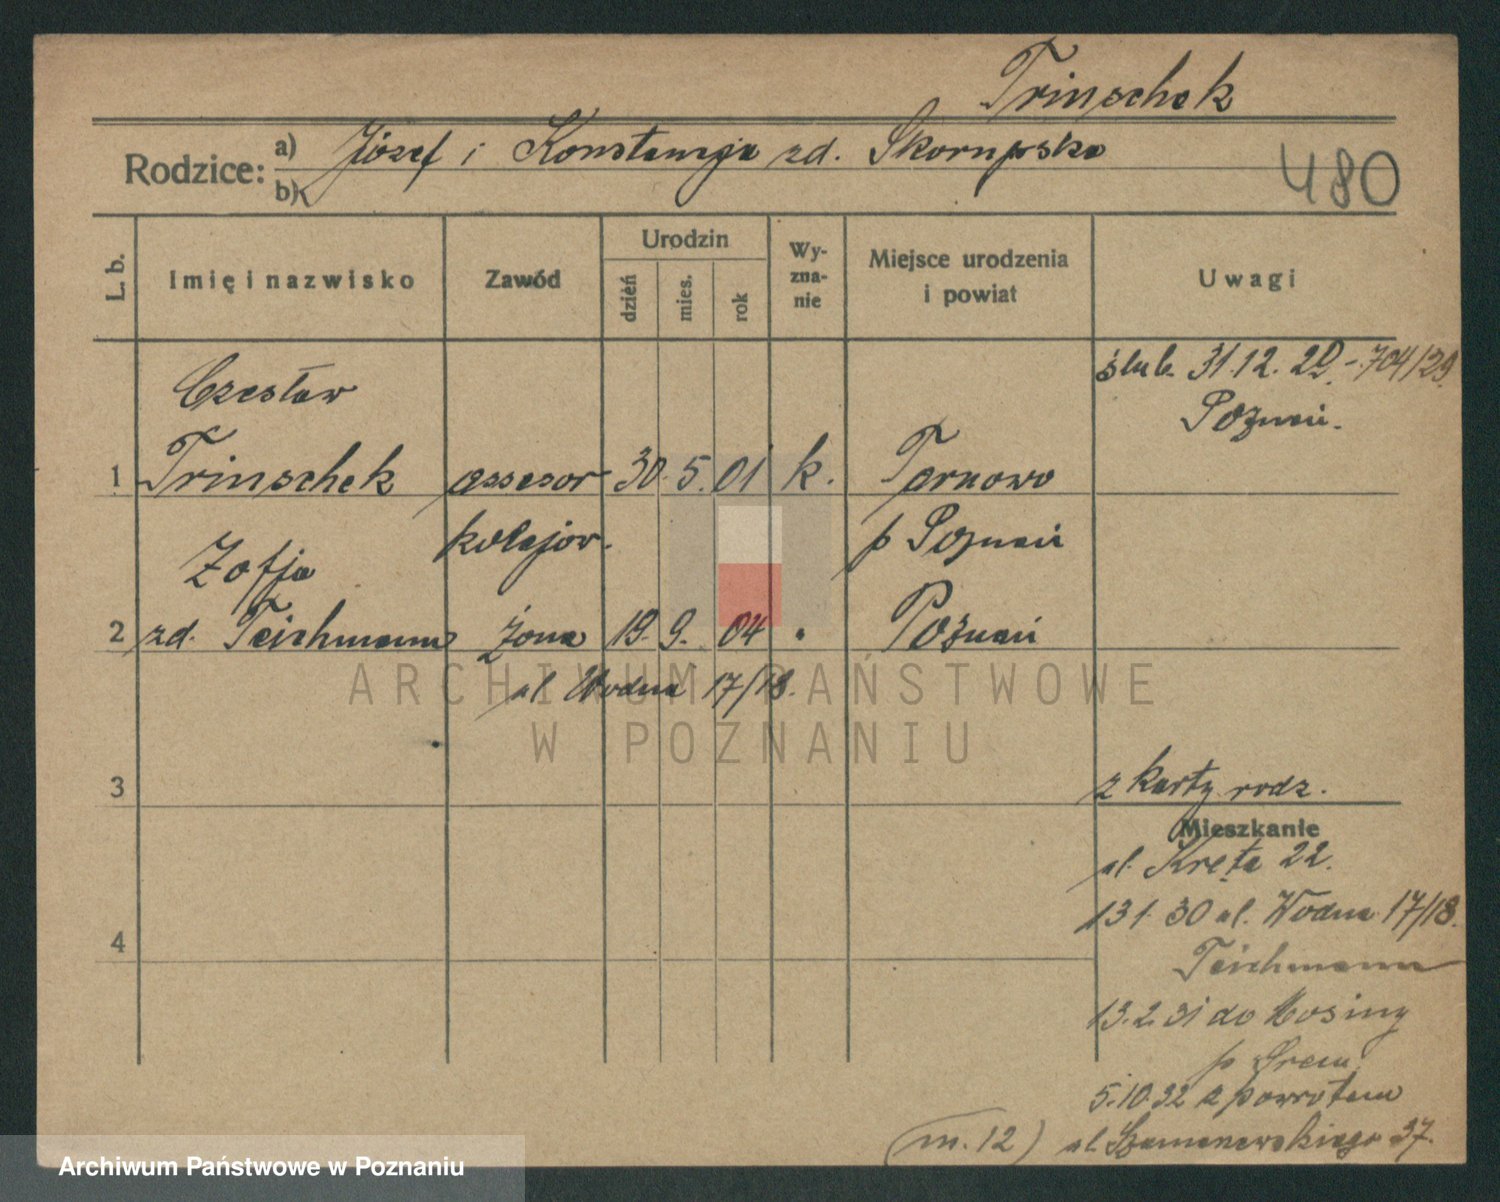 Trinschek
Rodzice: a) Józef i Konstancja zd. Skorupska
b)
480
L. b.
Imię i nazwisko
Zawód
Urodzin
dzień
mies.
rok
Wy-
zna-
nie
Miejsce urodzenia
i powiat
Uwagi
Czesław
ślub. 31.12.29.-704/29.
Poznań.
1 Trinschek assesor 30. 5. 01 k. Tarnowo
kolejow. p Poznań
Zofja
2 zd. Teichmann żona 19. 9. 04 " Poznań
ul. Wodna 17/18.
ARCHIWUM PAŃSTWOWE
W POZNANIU
3
z karty rodz.
Mieszkanie
ul. Kręta 22.
13 1. 30 ul. Wodna 17/18.
4
Teichmann
13.2.31 do Mosiny
p Śrem
5.10.32 z powrotem
(m. 12) ul. 37.
Archiwum Państwowe w Poznaniu